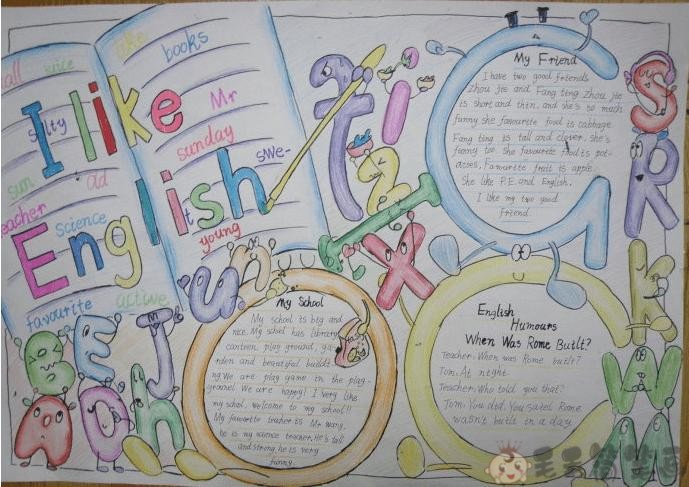 all
juice
like
books
I like
salty
Mr
sunday
swe-
sun
ad
teacher
science
it
young
English
favourite
active
My Friend
I have two good friends
Zhou jie and Fang ting Zhou jie
is short and thin. and she's so much
funny she favourite food is cabbage.
Fang ting is tall and clever. she's
funny too. She favourite food is pot-
atoes, Favourite fruit is apple.
She like P.E. and English.
I like my two good
friend.
My School
My school is big and
nice. My school has library
canteen, play ground, ga-
rden and beautiful buildi
ng. We are play game in the play-
ground. We are happy! I very like
my school. welcome to my school!!
My favourite teacher is Mr Wang,
he is my science teacher. He's tall
and strong, he is very
funny.
English
Humours
When Was Rome Built?
Teacher: When was Rome built?
Tom: At night.
Teacher: Who told you that?
Tom: You did. You said Rome
wasn't built in a day.
t
i
z
I
x
G
S
R
k
W
M
u
n
B
E
J
A
O
h